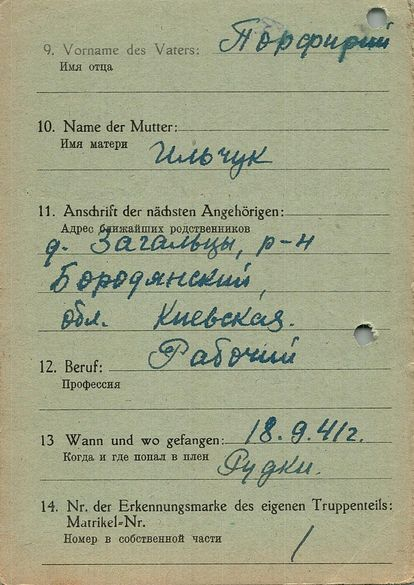 9. Vorname des Vaters: Порфирий
Имя отца
10. Name der Mutter:
Имя матери
Ильчук
11. Anschrift der nächsten Angehörigen:
Адрес ближайших родственников
д. Загальцы, р-н
Бородянский,
обл. Киевская.
12. Beruf: Рабочий
Профессия
13 Wann und wo gefangen: 18.9.41г.
Когда и где попал в плен
Рудки.
14. Nr. der Erkennungsmarke des eigenen Truppenteils:
Matrikel-Nr.
Номер в собственной части /